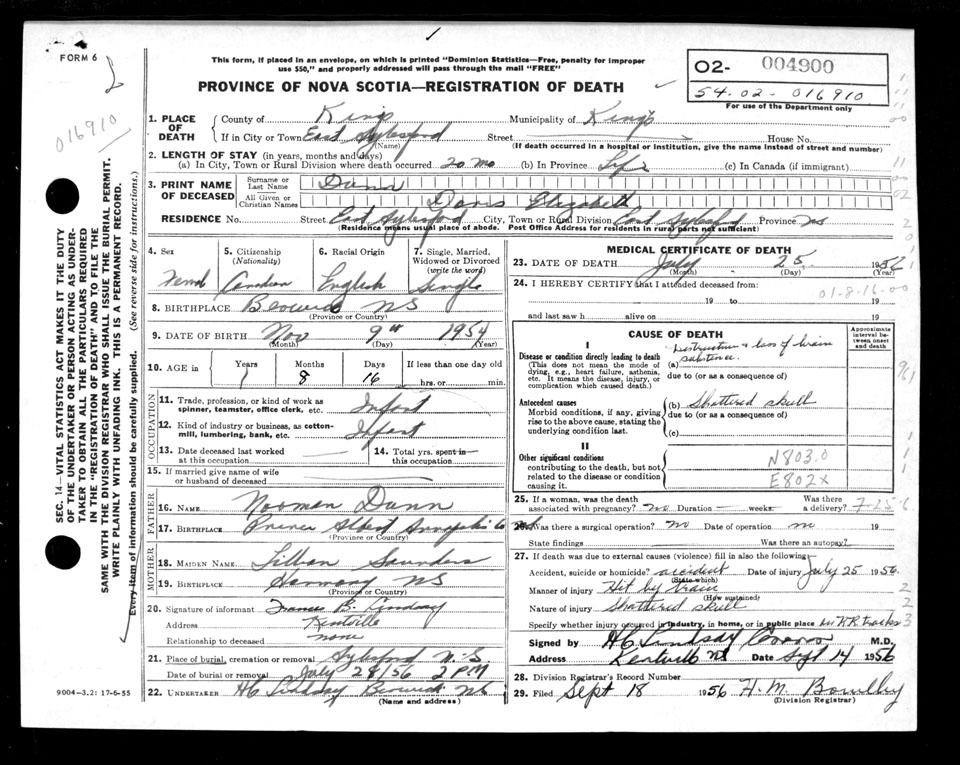 FORM 6
This form, if placed in an envelope, on which is printed "Dominion Statistics—Free, penalty for improper
use $50," and properly addressed will pass through the mail "FREE"
PROVINCE OF NOVA SCOTIA—REGISTRATION OF DEATH
O2- 004900
54-02-016910
For use of the Department only
016910
SEC. 14—VITAL STATISTICS ACT MAKES IT THE DUTY
OF THE UNDERTAKER OR PERSON ACTING AS UNDER-
TAKER TO OBTAIN ALL THE PARTICULARS REQUIRED
IN THE "REGISTRATION OF DEATH" AND TO FILE THE
SAME WITH THE DIVISION REGISTRAR WHO SHALL ISSUE THE BURIAL PERMIT.
WRITE PLAINLY WITH UNFADING INK. THIS IS A PERMANENT RECORD.
Every item of information should be carefully supplied. (See reverse side for instructions.)
1. PLACE OF DEATH
County of Kings Municipality of Kings
If in City or Town East Aylesford Street House No.
(Name) (If death occurred in a hospital or institution, give the name instead of street and number)
2. LENGTH OF STAY (in years, months and days)
(a) In City, Town or Rural Division where death occurred 20 mo (b) In Province Life (c) In Canada (if immigrant)
3. PRINT NAME OF DECEASED
Surname or Last Name Dunn
All Given or Christian Names Doris Elizabeth
RESIDENCE No. Street East Aylesford City, Town or Rural Division East Aylesford Province NS
(Residence means usual place of abode. Post Office Address for residents in rural parts not sufficient)
4. Sex
5. Citizenship (Nationality)
6. Racial Origin
7. Single, Married, Widowed or Divorced (write the word)
Femal Canadian English Single
8. BIRTHPLACE Berwick NS
(Province or Country)
9. DATE OF BIRTH Nov 9th 1954
(Month) (Day) (Year)
10. AGE in Years Months Days If less than one day old
1 8 16 hrs. or min.
OCCUPATION
11. Trade, profession, or kind of work as spinner, teamster, office clerk, etc. Infant
12. Kind of industry or business, as cotton-mill, lumbering, bank, etc. Infant
13. Date deceased last worked at this occupation
14. Total yrs. spent in this occupation
15. If married give name of wife or husband of deceased
FATHER
16. NAME Norman Dunn
17. BIRTHPLACE Prince Albert Annapolis Co
(Province or Country)
MOTHER
18. MAIDEN NAME Lillian Saunders
19. BIRTHPLACE Harmony NS
(Province or Country)
20. Signature of informant Francis B. Lindsay
Address Kentville
Relationship to deceased none
21. Place of burial, cremation or removal Aylesford N-S
Date of burial or removal July 28/56 2 PM
22. UNDERTAKER HC Lindsay Berwick NS
(Name and address)
9004-3.2: 17-6-55
MEDICAL CERTIFICATE OF DEATH
23. DATE OF DEATH July 25 1956
(Month) (Day) (Year)
24. I HEREBY CERTIFY that I attended deceased from:
19 to 19
01-8-16-00
and last saw h alive on 19
CAUSE OF DEATH
Approximate interval between onset and death
I
Disease or condition directly leading to death
(This does not mean the mode of dying, e.g., heart failure, asthenia, etc. It means the disease, injury, or complication which caused death.)
(a) Destruction & loss of brain substance.
due to (or as a consequence of)
Antecedent causes
Morbid conditions, if any, giving rise to the above cause, stating the underlying condition last.
(b) Shattered skull
due to (or as a consequence of)
(c)
II
Other significant conditions
contributing to the death, but not related to the disease or condition causing it.
N803.0
E802X
25. If a woman, was the death associated with pregnancy? no Duration weeks Was there a delivery? 7-25-6
26. Was there a surgical operation? no Date of operation no 19
State findings Was there an autopsy?
27. If death was due to external causes (violence) fill in also the following:
Accident, suicide or homicide? accident Date of injury July 25 1956
(State which)
Manner of injury Hit by train
(How sustained)
Nature of injury Shattered skull
Specify whether injury occurred in industry, in home, or in public place on R.R tracks
Signed by HC Lindsay Coroner M.D.
Address Kentville NS Date Sept 14 1956
28. Division Registrar's Record Number
29. Filed Sept 18 1956 H. M.
(Division Registrar)